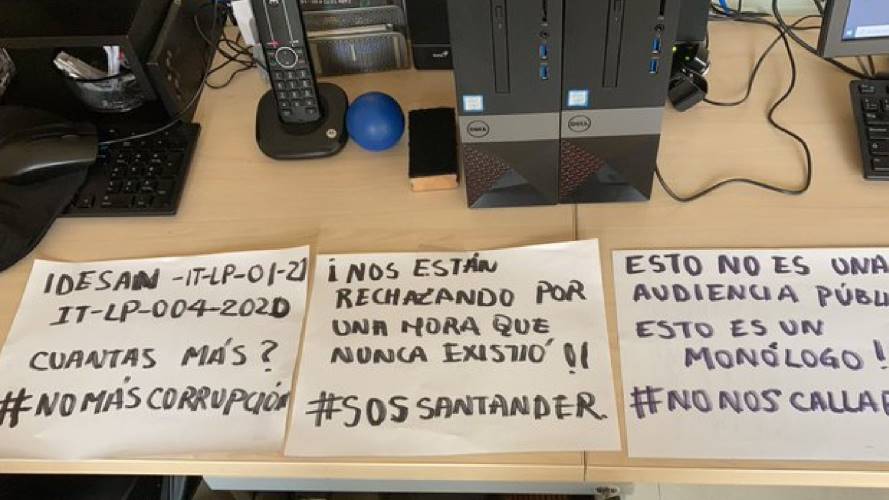 DELL
DELL
IDESAN -IT-LP-01-21
IT-LP-004-2020
CUANTAS MÁS?
#NOMÁSCORRUPCIÓN
¡NOS ESTÁN
RECHAZANDO POR
UNA MORA QUE
NUNCA EXISTIÓ!!
#SOSSANTANDER.
ESTO NO ES UNA
AUDIENCIA PÚBLI
ESTO ES UN
MONÓLOGO!
#NONOSCALLAR